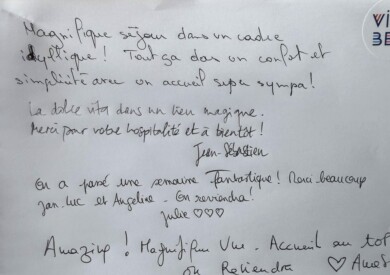 Magnifique séjour dans un cadre
idyllique ! Tout ça dans un confort et
simplicité avec un accueil super sympa !
La dolce vita dans un lieu magique.
Merci pour votre hospitalité et à bientôt !
Jean-Sébastien
On a passé une semaine fantastique ! Merci beaucoup
Jan-Luc et Angeline. On reviendra !
Julie ♡♡♡
Amazing ! Magnifique Vue - Accueil au top
on Reviendra ♡
VI
BE